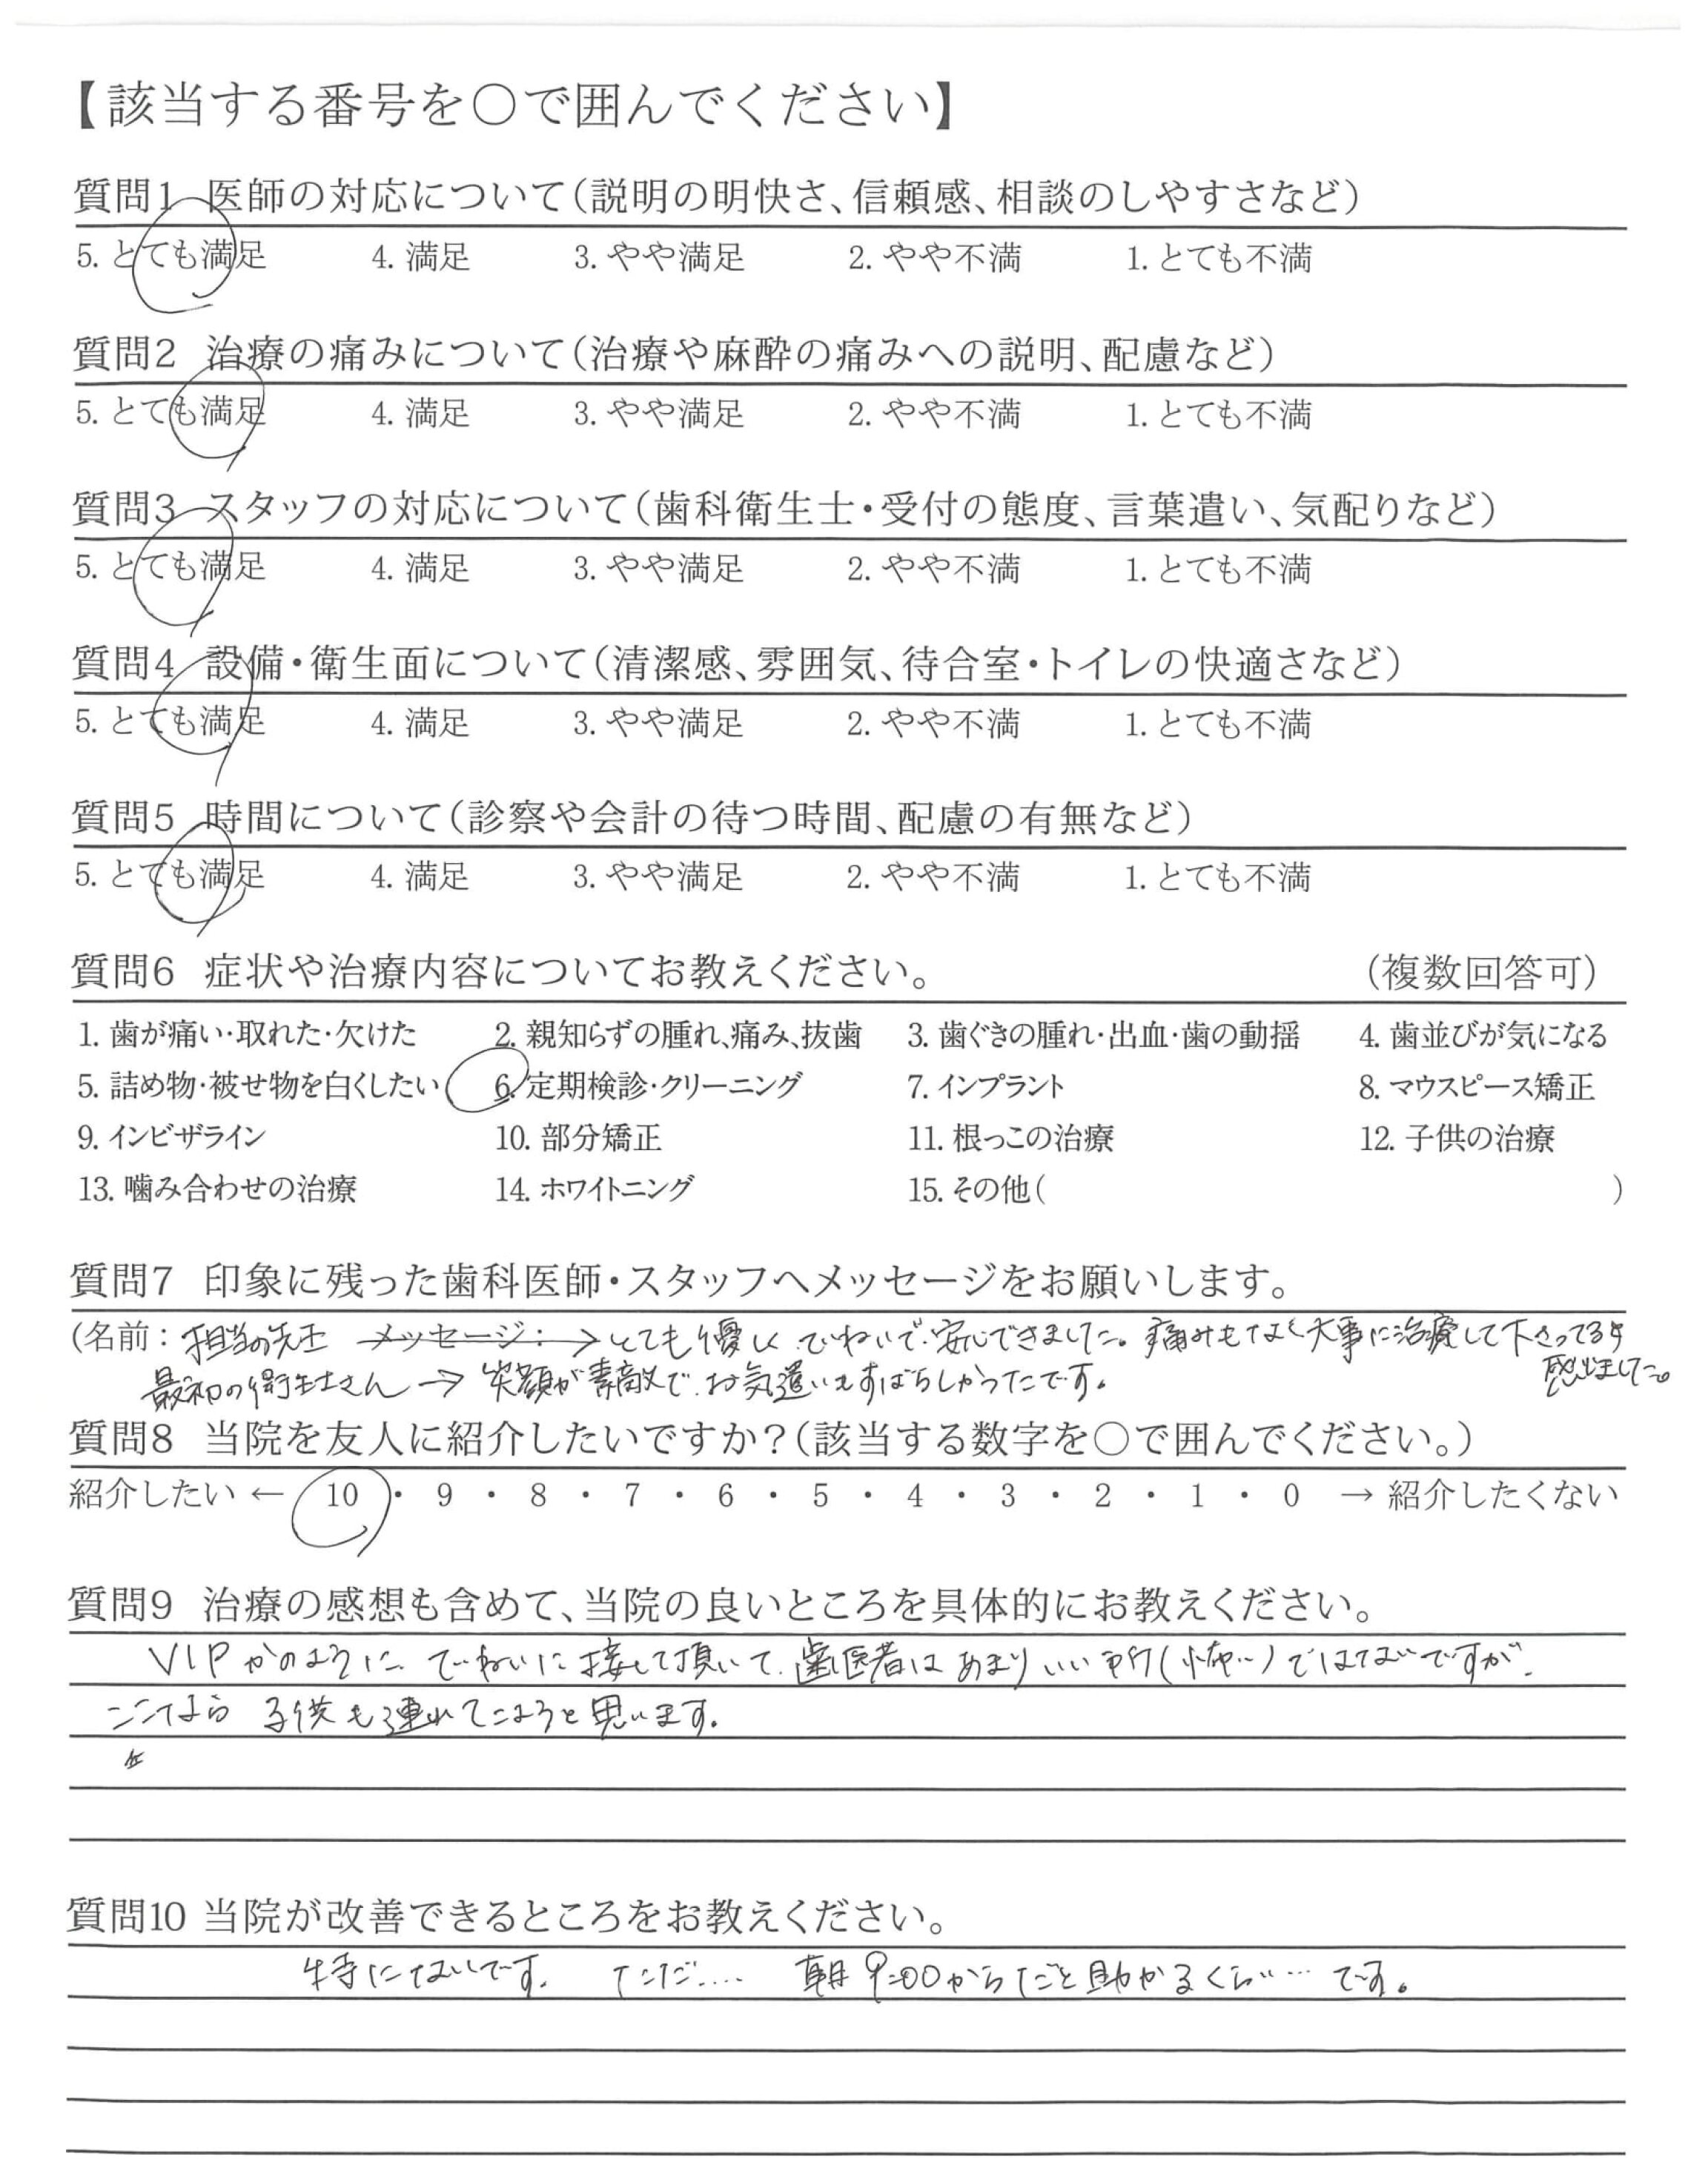 【該当する番号を〇で囲んでください】
質問1 医師の対応について(説明の明快さ、信頼感、相談のしやすさなど)
5. とても満足 4. 満足 3. やや満足 2. やや不満 1. とても不満
質問2 治療の痛みについて(治療や麻酔の痛みへの説明、配慮など)
5. とても満足 4. 満足 3. やや満足 2. やや不満 1. とても不満
質問3 スタッフの対応について(歯科衛生士・受付の態度、言葉遣い、気配りなど)
5. とても満足 4. 満足 3. やや満足 2. やや不満 1. とても不満
質問4 設備・衛生面について(清潔感、雰囲気、待合室・トイレの快適さなど)
5. とても満足 4. 満足 3. やや満足 2. やや不満 1. とても不満
質問5 時間について(診察や会計の待つ時間、配慮の有無など)
5. とても満足 4. 満足 3. やや満足 2. やや不満 1. とても不満
質問6 症状や治療内容についてお教えください。 (複数回答可)
1. 歯が痛い・取れた・欠けた 2. 親知らずの腫れ、痛み、抜歯 3. 歯ぐきの腫れ・出血・歯の動揺 4. 歯並びが気になる
5. 詰め物・被せ物を白くしたい 6. 定期検診・クリーニング 7. インプラント 8. マウスピース矯正
9. インビザライン 10. 部分矯正 11. 根っこの治療 12. 子供の治療
13. 噛み合わせの治療 14. ホワイトニング 15. その他( )
質問7 印象に残った歯科医師・スタッフへメッセージをお願いします。
(名前: 担当の先生 メッセージ: → とても優しく ていねいで安心できました。痛みもなく大事に治療して下さってると
感じました。
最初の衛生士さん → 笑顔が素敵で、お気遣いもすばらしかったです。
質問8 当院を友人に紹介したいですか?(該当する数字を〇で囲んでください。)
紹介したい ← 10 ・ 9 ・ 8 ・ 7 ・ 6 ・ 5 ・ 4 ・ 3 ・ 2 ・ 1 ・ 0 → 紹介したくない
質問9 治療の感想も含めて、当院の良いところを具体的にお教えください。
VIPかのように ていねいに接して頂いて、歯医者はあまりいい所(怖い)ではないですが、
ここなら 子供も連れてこようと思います。
質問10 当院が改善できるところをお教えください。
特にないです。 ただ…. 朝9:00からだと助かるくらい… です。